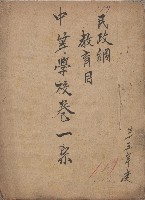 民政綱
教育目
中等學校卷一宗
三十五年度